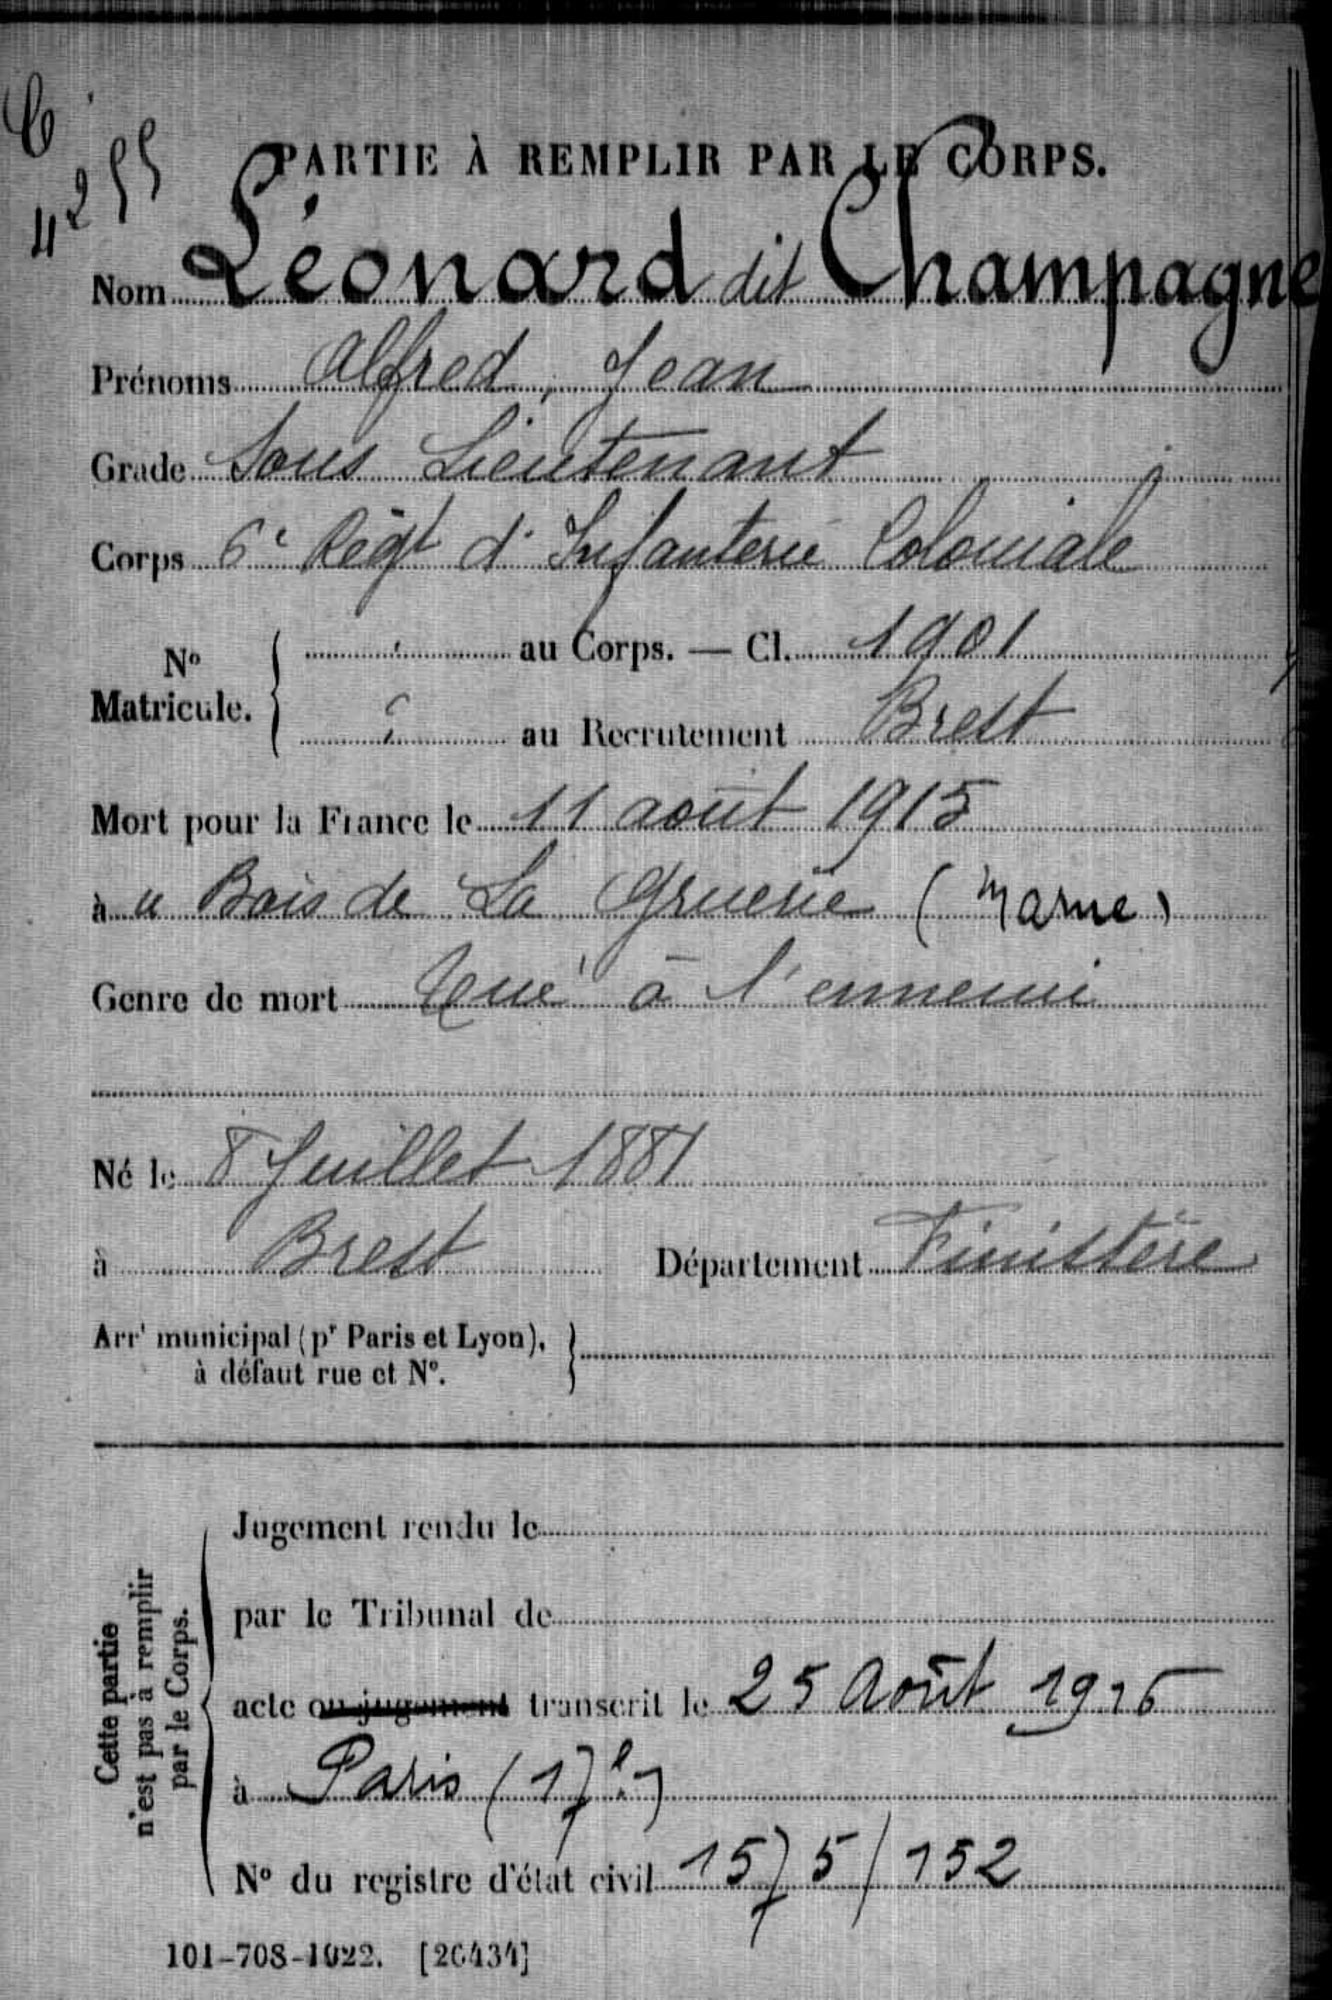 4255
PARTIE À REMPLIR PAR LE CORPS.
Nom Léonard dit Champagne
Prénoms Alfred, Jean
Grade Sous Lieutenant
Corps 6e Régt d'Infanterie Coloniale
No Matricule. { au Corps. — Cl. 1901
au Recrutement Brest
Mort pour la France le 11 août 1915
à u Bois de La Gruerie (Marne)
Genre de mort Tué à l'ennemi
Né le 8 Juillet 1881
à Brest Département Finistère
Arrt municipal (pr Paris et Lyon), }
à défaut rue et No.
Cette partie
n'est pas à remplir
par le Corps.
Jugement rendu le
par le Tribunal de
acte ou jugement transcrit le 25 Août 1916
à Paris (17e)
No du registre d'état civil 1575/152
101-708-1922. [26434]